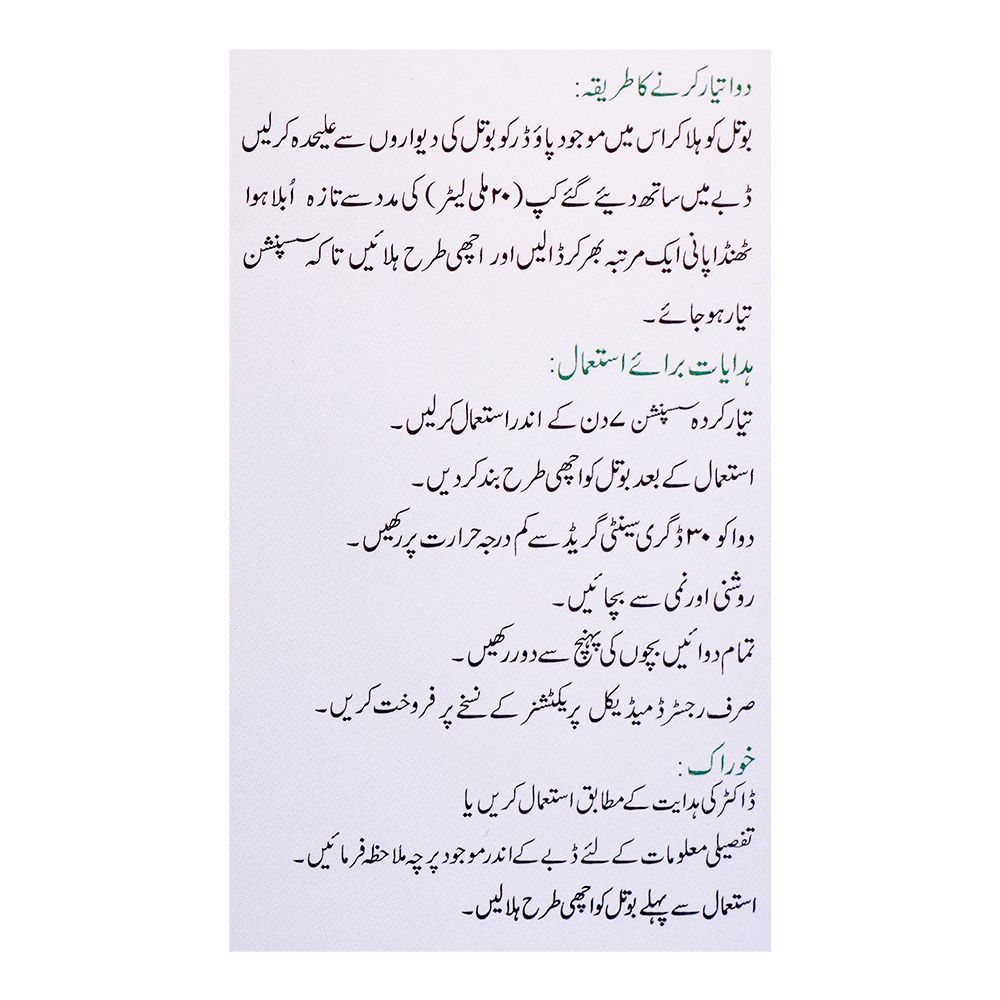 دوا تیار کرنے کا طریقہ:
بوتل کو ہلا کر اس میں موجود پاؤڈر کو بوتل کی دیواروں سے علیحدہ کر لیں
ڈبے میں ساتھ دیئے گئے کپ (۲۰ ملی لیٹر) کی مدد سے تازہ اُبلا ہوا
ٹھنڈا پانی ایک مرتبہ بھر کر ڈالیں اور اچھی طرح ہلائیں تاکہ سسپنشن
تیار ہو جائے۔
ہدایات برائے استعمال:
تیار کردہ سسپنشن ۷ دن کے اندر استعمال کر لیں۔
استعمال کے بعد بوتل کو اچھی طرح بند کر دیں۔
دوا کو ۳۰ ڈگری سینٹی گریڈ سے کم درجہ حرارت پر رکھیں۔
روشنی اور نمی سے بچائیں۔
تمام دوائیں بچوں کی پہنچ سے دور رکھیں۔
صرف رجسٹرڈ میڈیکل پریکٹشنر کے نسخے پر فروخت کریں۔
خوراک:
ڈاکٹر کی ہدایت کے مطابق استعمال کریں یا
تفصیلی معلومات کے لئے ڈبے کے اندر موجود پرچہ ملاحظہ فرمائیں۔
استعمال سے پہلے بوتل کو اچھی طرح ہلا لیں۔